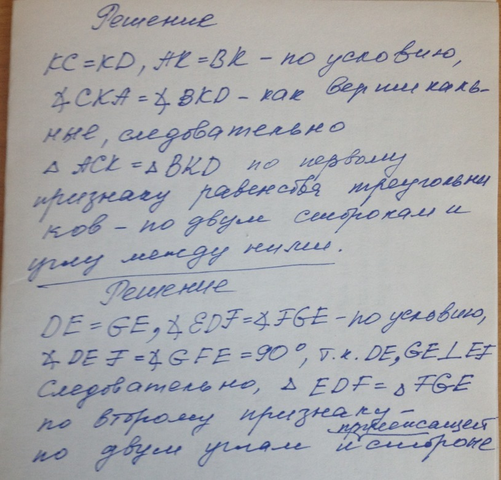 Решение
KC=KD, AK=BK - по условию,
∡CKA=∡BKD - как вертикаль-
ные, следовательно
△ ACK = △ BKD по первому
признаку равенства треугольни
ков - по двум сторонам и
углу между ними.
Решение
DE = GE, ∡EDF=∡FGE - по условию,
∡DEF=∡GFE=90°, т.к. DE, GE⊥EF
Следовательно, △ EDF = △ FGE
по второму признаку -
по двум углам и прилежащей стороне